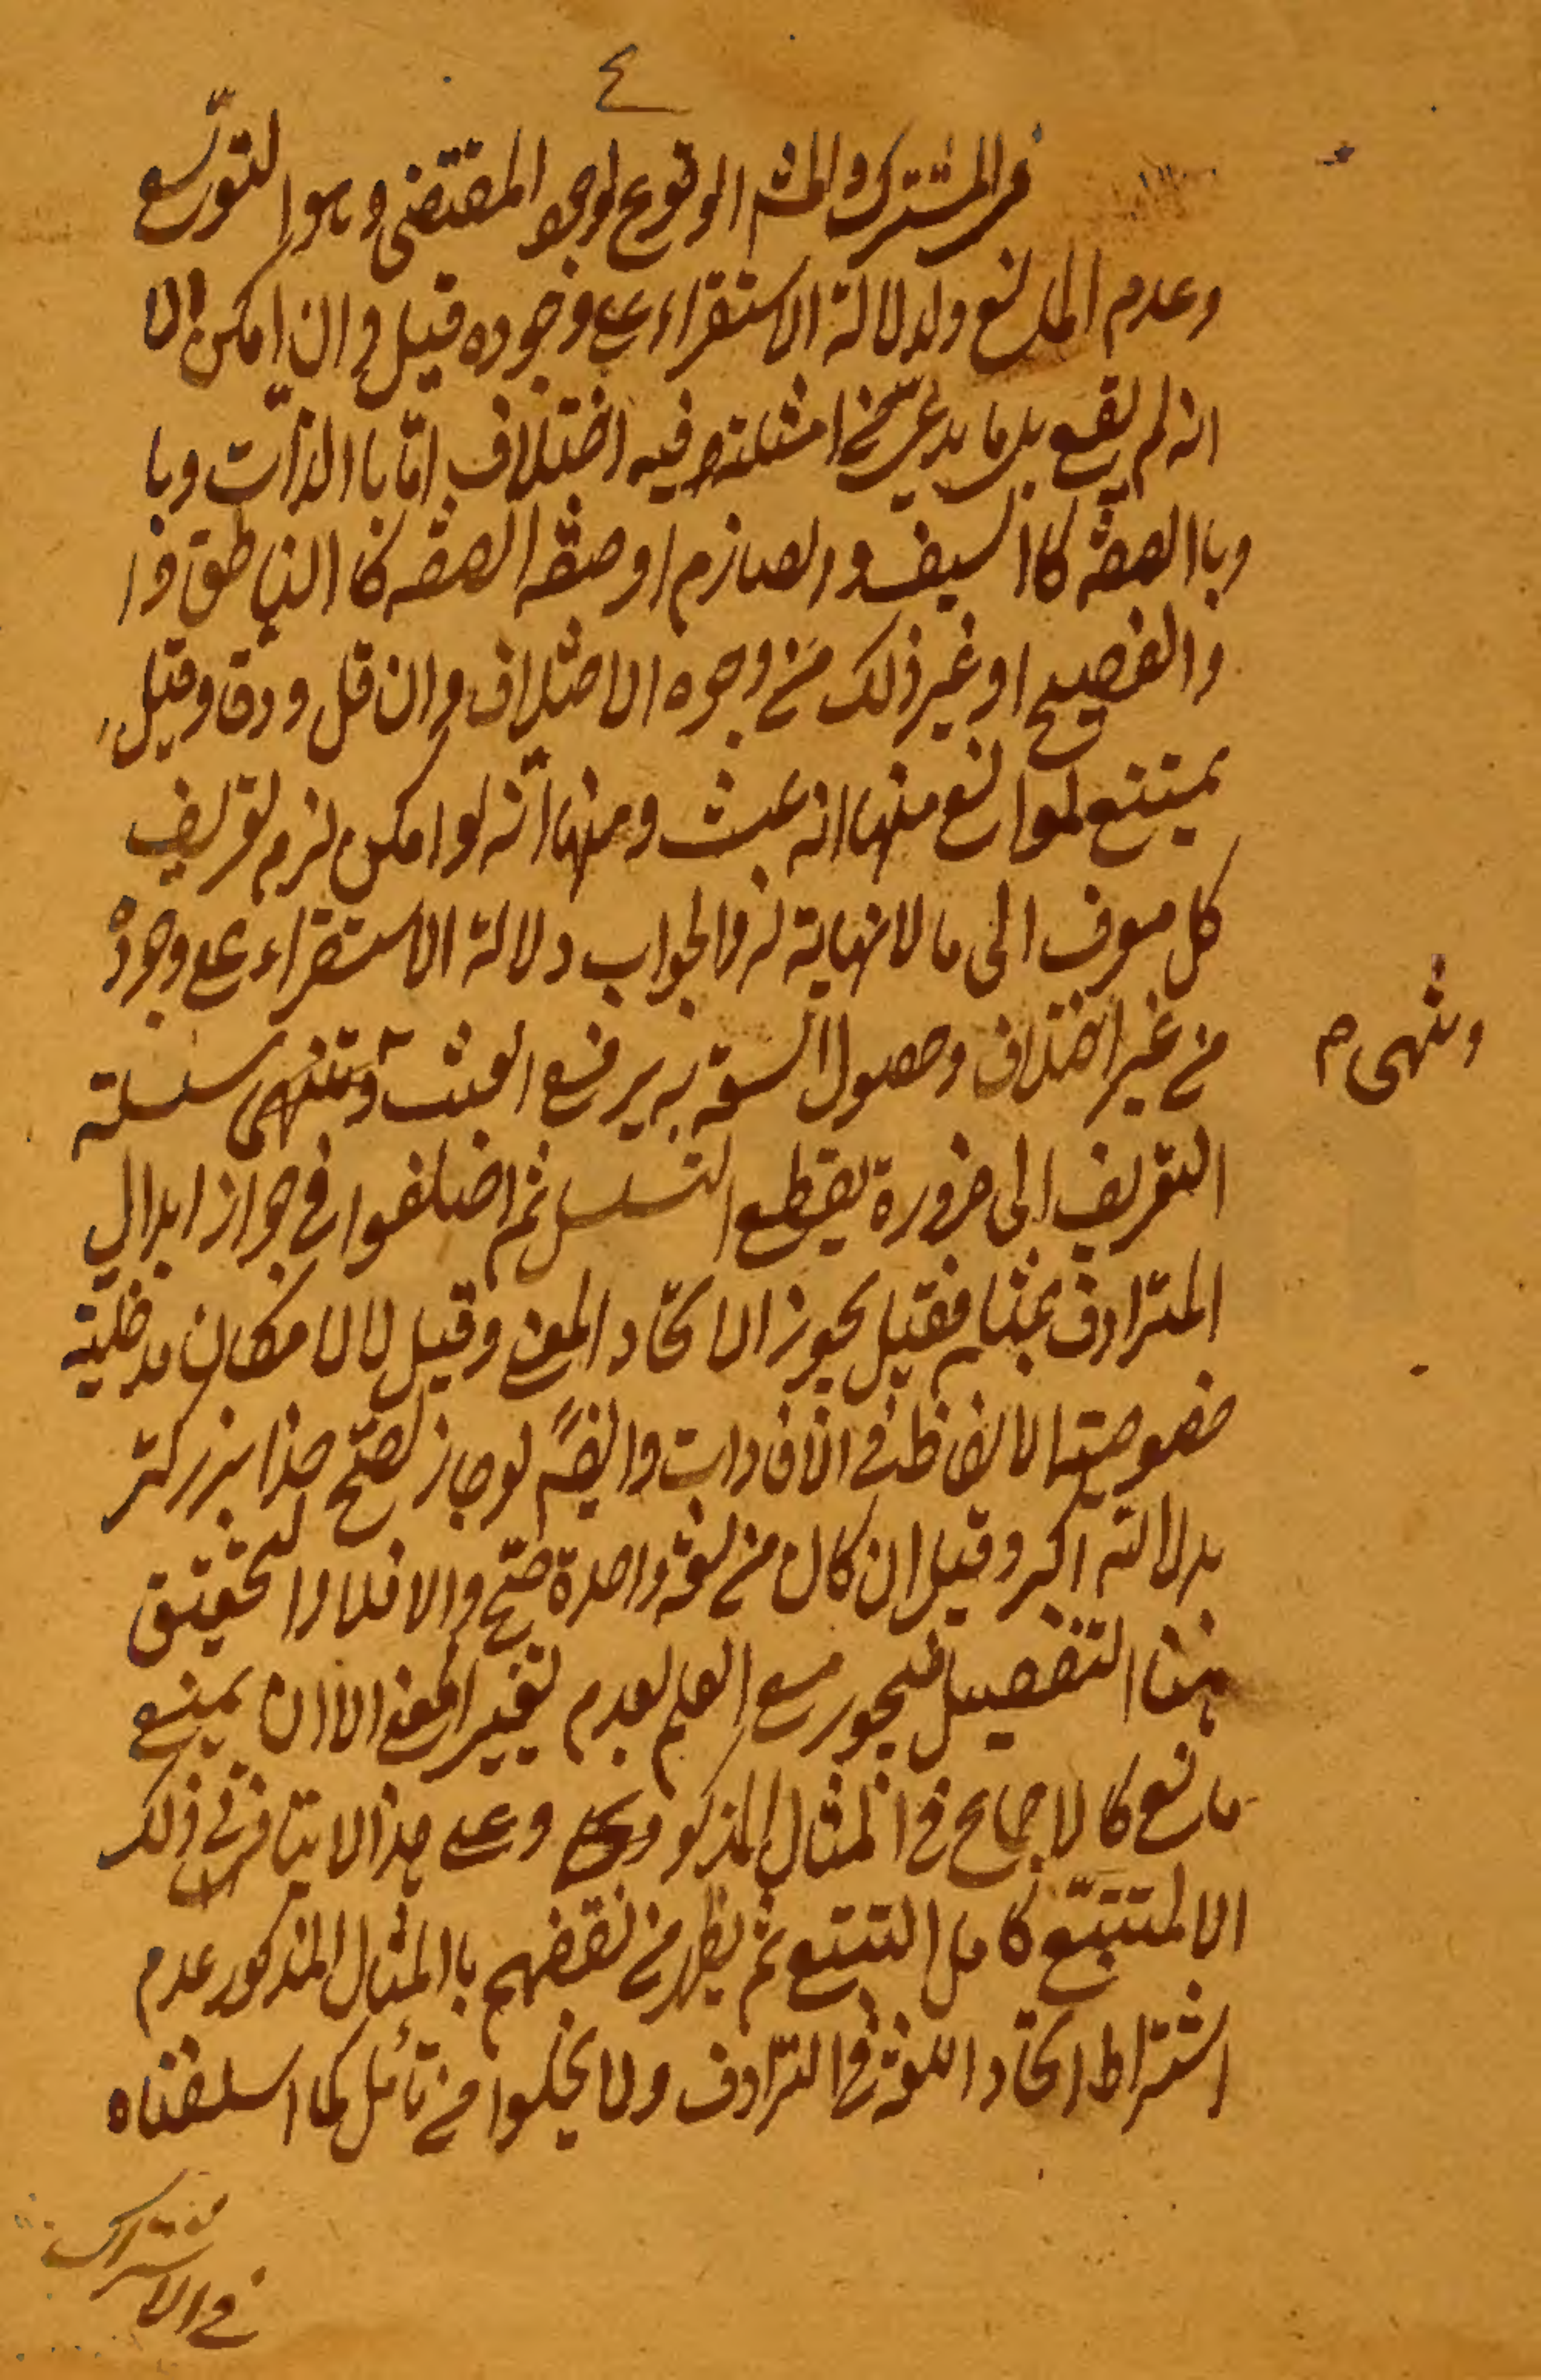 ٤
في المشترك والمش الوقوع لوجو المقتضى وهو التوسّع
وعدم المانع ولدلالة الاستقراء على وجوده قيل وان امكن الا
انه لم يقع بل ما يدعى من امثلته فيه اختلاف امّا باالذات وبا
وباالصفة كاالسيف والصارم او صفة الصفه كاالناطق وا
والفصيح او غير ذلك من وجوه الاختلاف وان قل ودق وقيل
يمتنع لموانع منها انه عبث ومنها انّه لو امكن لزم تعريف
كل معرف الى ما لا نهاية له والجواب دلالة الاستقراء على وجوده
من غير اختلاف وحصول السعة به يرفع العبث وتنتهى سلسلة
وينتهى م
التعريف الى ضرورة يقطع التسلسل ثم اختلفوا في جواز ابدال
المترادف بمثله فقيل يجوز لاتحاد المعنى وقيل لا لامكان مدخلية
خصوصية الالفاظ في الافادات وايضًا لو جاز لصحّ خدا بزركتر
بدلالته اكبر وقيل ان كان من لغة واحدة صحّ والا فلا والتحقيق
هنا التفصيل فيجوز مع العلم بعدم تغيير المعنى الا ان يمنع
مانع كالاجماع في المثال المذكور وعلى هذا لا يتاتى في ذلك
الا لمتتبّع كامل التتبع ثم يظهر من نقضهم باالمثال المذكور عدم
اشتراط اتحاد اللغة في الترادف ولا يخلوا من تأمل كما اسلفناه
في الاشتراك